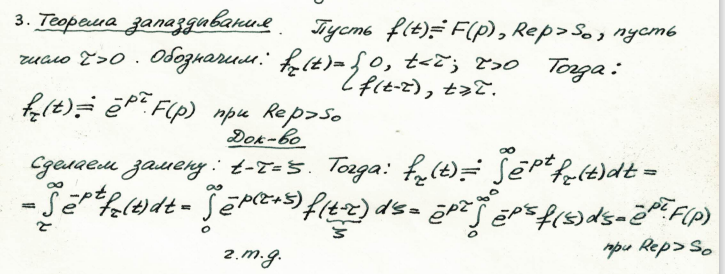 3. Теорема запаздывания. Пусть f(t)≓F(p), Rep>S₀, пусть
число τ>0. Обозначим: f_τ(t)={0, t<τ; τ>0 Тогда:
f(t-τ), t⩾τ.
f_τ(t)≓e^{-pτ}·F(p) при Rep>S₀
Док-во
Сделаем замену: t-τ=ξ. Тогда: f_τ(t)≓∫₀^∞ e^{-pt} f_τ(t)dt =
= ∫_τ^∞ e^{-pt} f_τ(t)dt = ∫₀^∞ e^{-p(τ+ξ)} f(t-τ) dξ = e^{-pτ} ∫₀^∞ e^{-pξ} f(ξ)dξ = e^{-pτ}·F(p)
ξ
при Rep>S₀
г.т.д.